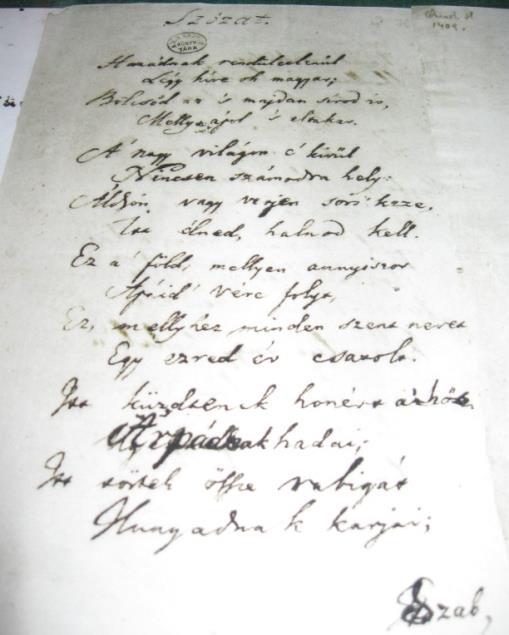 Szózat.
Hazádnak rendületlenűl
Légy híve oh magyar;
Bölcsőd az 's majdan sírod is,
Melly ápol 's eltakar.
A' nagy világon e' kivűl
Nincsen számodra hely;
Áldjon vagy verjen sors keze,
Itt élned, halnod kell.
Ez a' föld, mellyen annyiszor
Apáid' vére folyt,
Ez, mellyhez minden szent nevet
Egy ezred év csatolt.
Itt küzdtenek honért a' hős
Árpádnak hadai;
Itt törtek össze rabigát
Hunyadnak karjai;
Szab,